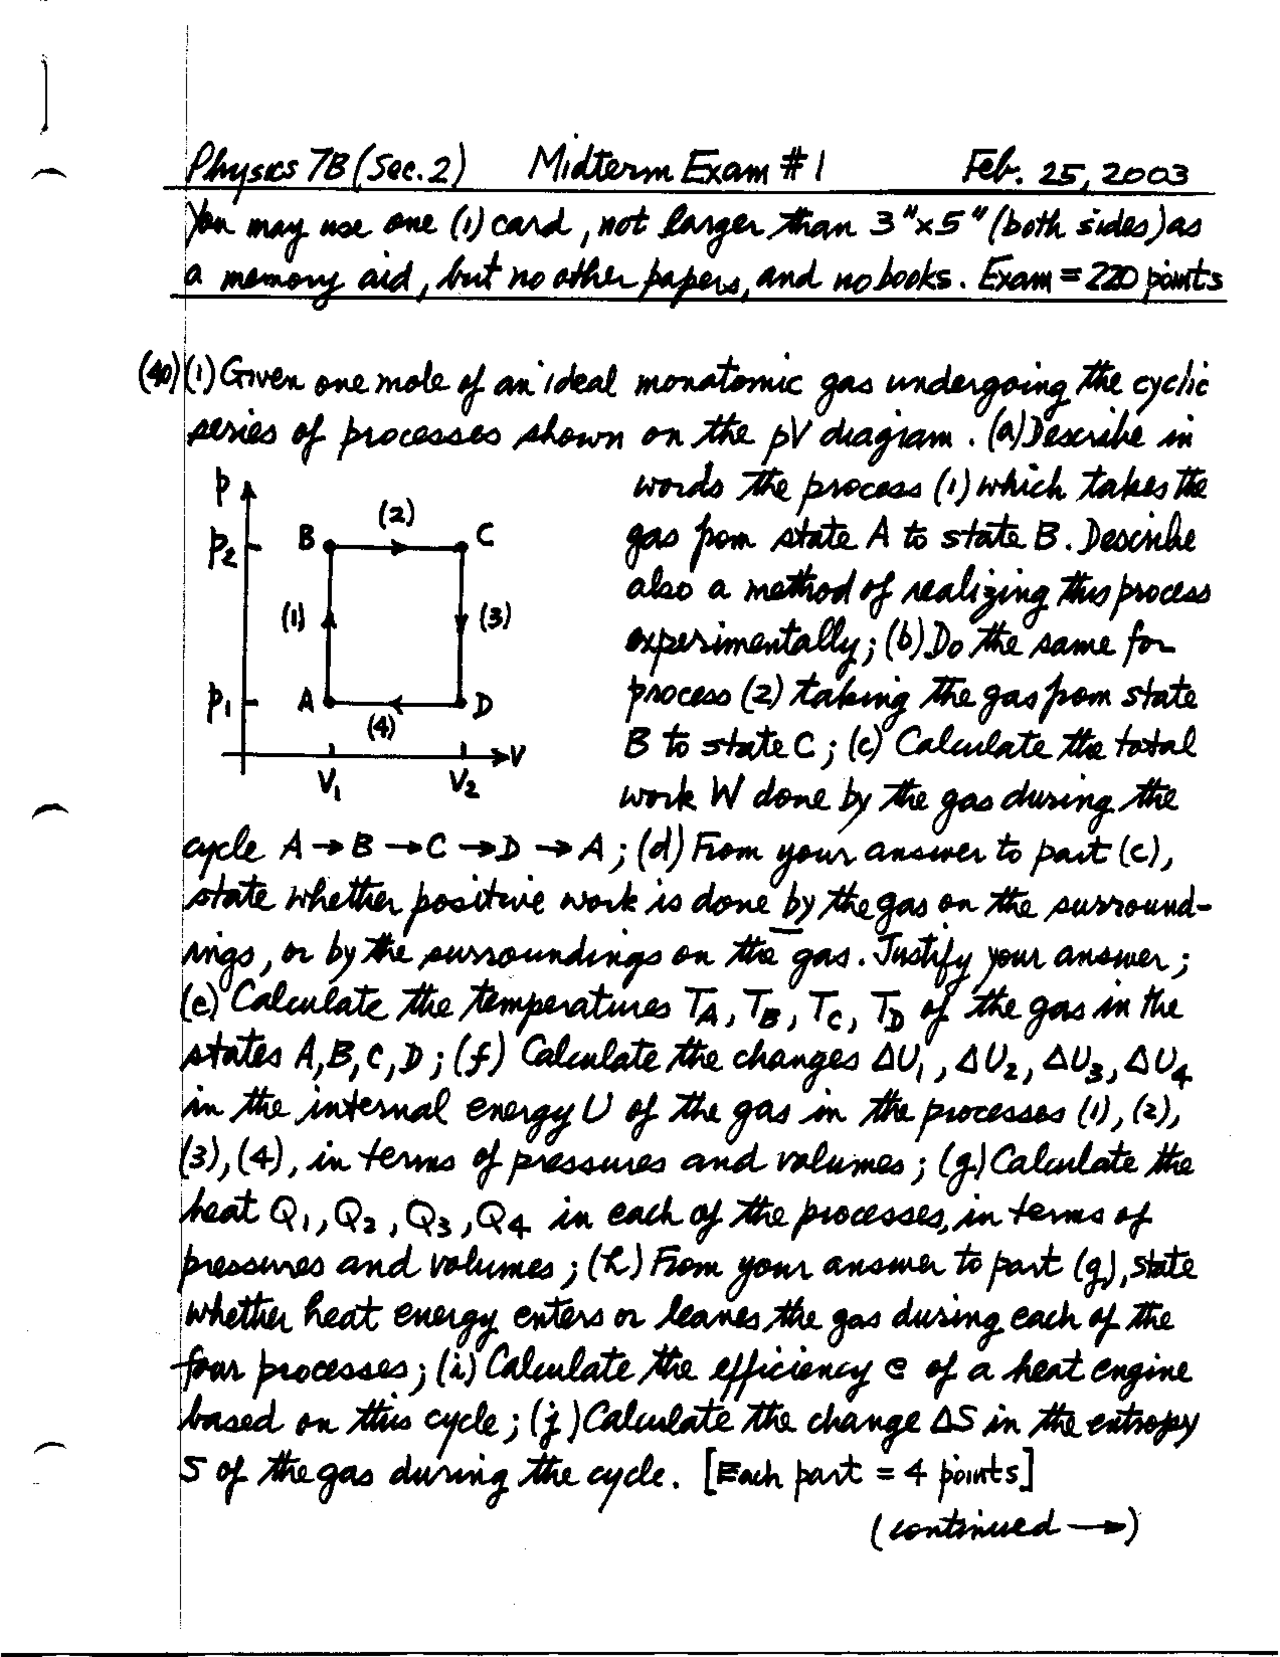 Physics 7B (Sec. 2) Midterm Exam #1 Feb. 25, 2003
You may use one (1) card, not larger than 3"x5" (both sides) as
a memory aid, but no other papers, and no books. Exam = 220 points
(40) (1) Given one mole of an ideal monatomic gas undergoing the cyclic
series of processes shown on the pV diagram. (a) Describe in
words the process (1) which takes the
gas from state A to state B. Describe
also a method of realizing this process
experimentally; (b) Do the same for
process (2) taking the gas from state
B to state C; (c) Calculate the total
work W done by the gas during the
p
p₂
B
(2)
C
(1)
(3)
p₁
A
(4)
D
V
V₁
V₂
cycle A → B → C → D → A; (d) From your answer to part (c),
state whether positive work is done by the gas on the surround-
ings, or by the surroundings on the gas. Justify your answer;
(e) Calculate the temperatures T_A, T_B, T_C, T_D of the gas in the
states A, B, C, D; (f) Calculate the changes ΔU₁, ΔU₂, ΔU₃, ΔU₄
in the internal energy U of the gas in the processes (1), (2),
(3), (4), in terms of pressures and volumes; (g) Calculate the
heat Q₁, Q₂, Q₃, Q₄ in each of the processes, in terms of
pressures and volumes; (h) From your answer to part (g), state
whether heat energy enters or leaves the gas during each of the
four processes; (i) Calculate the efficiency e of a heat engine
based on this cycle; (j) Calculate the change ΔS in the entropy
S of the gas during the cycle. [Each part = 4 points]
(continued →)